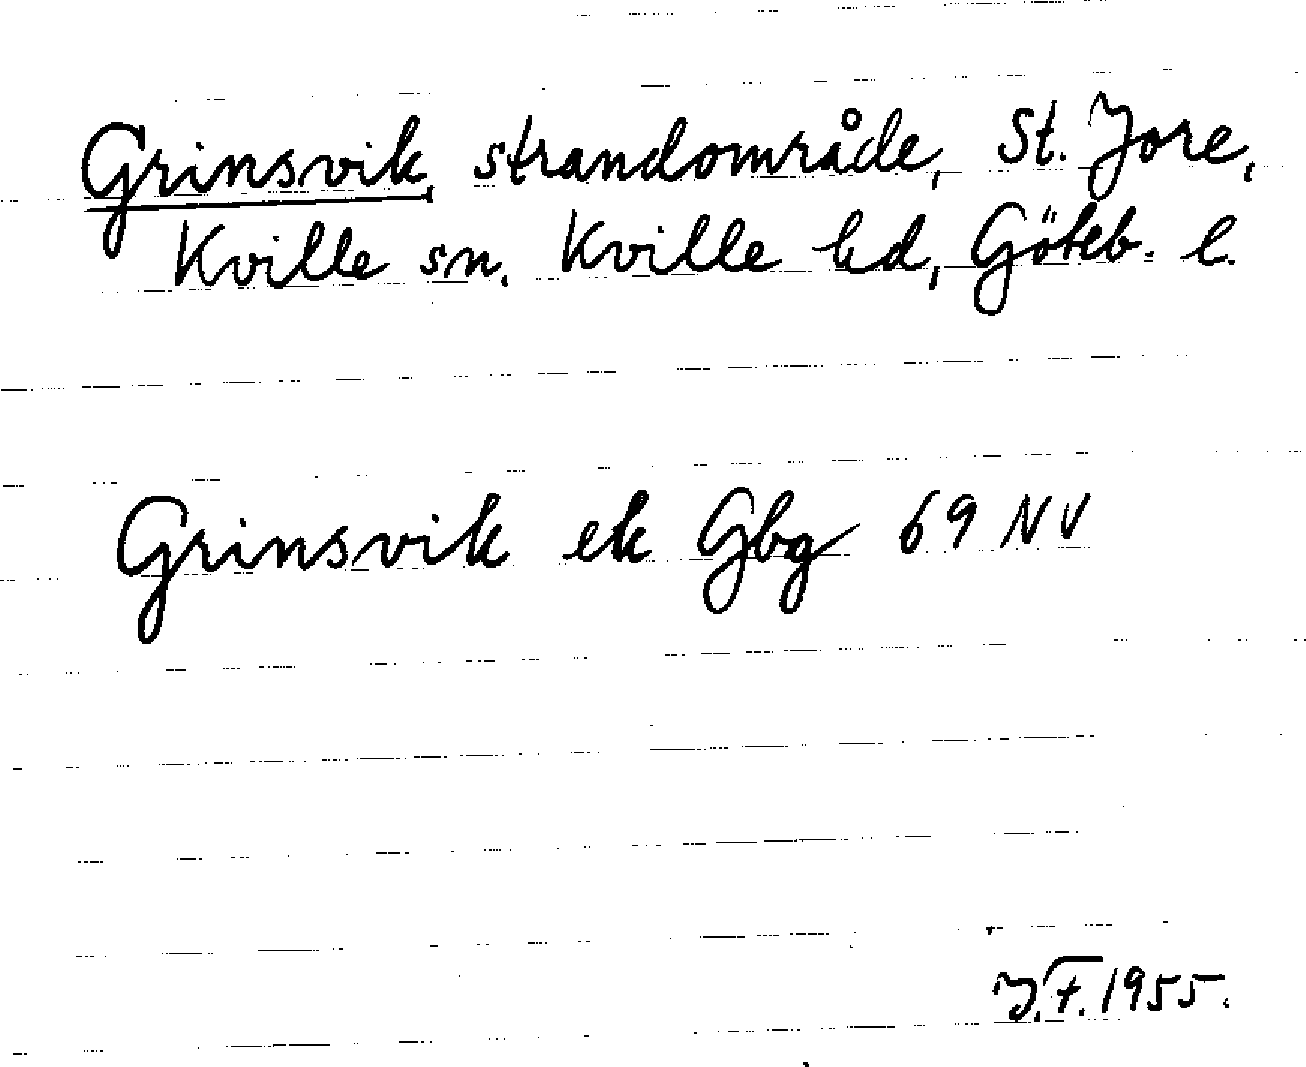 Grinsvik, strandområde, St. Jore,
Kville sn. Kville hd, Göteb. l.
Grinsvik ek Gbg 69 NV
J.F. 1955.